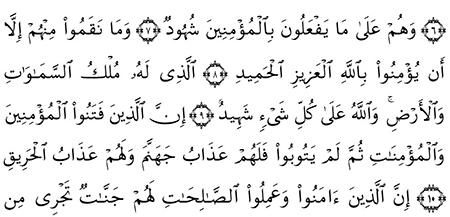 ﴿٦﴾ وَهُمْ عَلَىٰ مَا يَفْعَلُونَ بِٱلْمُؤْمِنِينَ شُهُودٌ ﴿٧﴾ وَمَا نَقَمُوا۟ مِنْهُمْ إِلَّا
أَن يُؤْمِنُوا۟ بِٱللَّهِ ٱلْعَزِيزِ ٱلْحَمِيدِ ﴿٨﴾ ٱلَّذِى لَهُۥ مُلْكُ ٱلسَّمَـٰوَٰتِ
وَٱلْأَرْضِ ۚ وَٱللَّهُ عَلَىٰ كُلِّ شَىْءٍ شَهِيدٌ ﴿٩﴾ إِنَّ ٱلَّذِينَ فَتَنُوا۟ ٱلْمُؤْمِنِينَ
وَٱلْمُؤْمِنَـٰتِ ثُمَّ لَمْ يَتُوبُوا۟ فَلَهُمْ عَذَابُ جَهَنَّمَ وَلَهُمْ عَذَابُ ٱلْحَرِيقِ
﴿١٠﴾ إِنَّ ٱلَّذِينَ ءَامَنُوا۟ وَعَمِلُوا۟ ٱلصَّـٰلِحَـٰتِ لَهُمْ جَنَّـٰتٌ تَجْرِى مِن